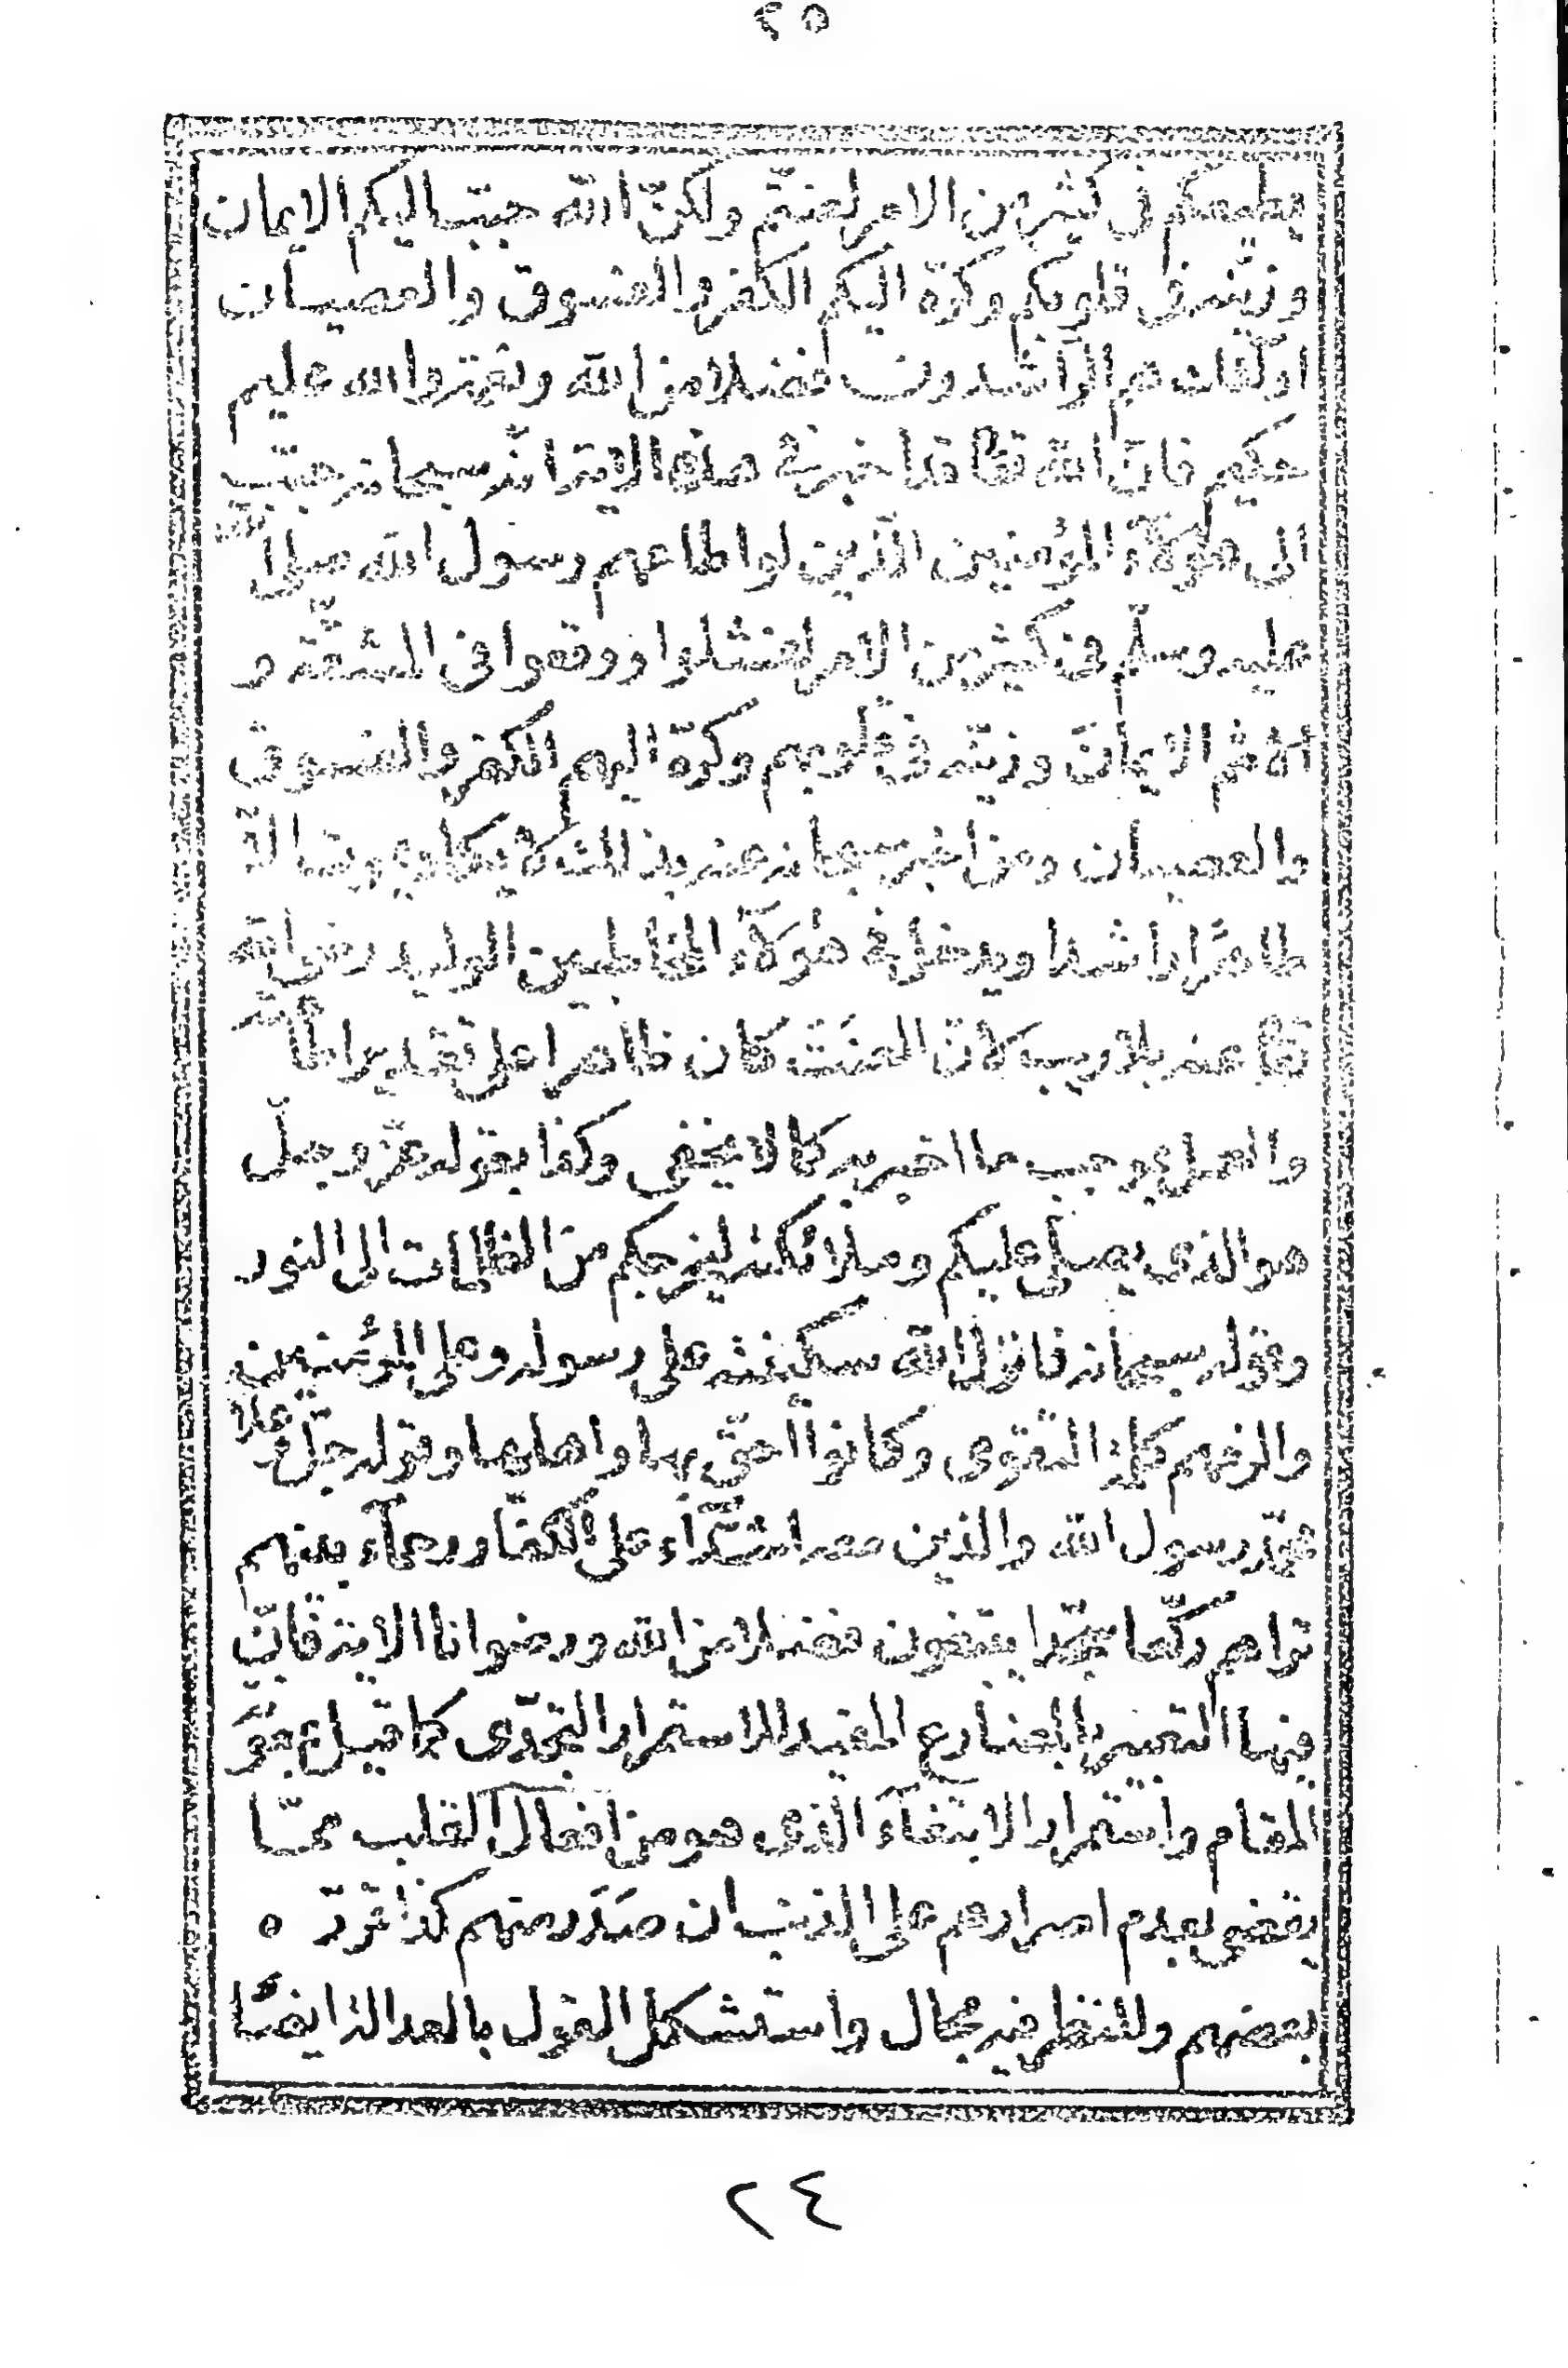 ٢٥
يطيعكم فى كثير من الامر لعنتّم ولكنّ اللّه حبّب اليكم الايمان
وزيّنه فى قلوبكم وكرّه اليكم الكفر والفسوق والعصيان
اولئك هم الراشدون فضلا من اللّه ونعمة والله عليم
حكيم فانّ اللّه تعا قد اخبر فى هذه الاية انّه سبحانه حبّب
الى هؤلآء المؤمنين الّذين لو اطاعهم رسول اللّه صلى اللّه
عليه وسلّم فى كثير من الامر لفشلوا ووقعوا فى المشقّة و
الايمان وزيّنه فى قلوبهم وكرّه اليهم الكفر والفسوق
والعصيان ومن اخبر سبحانه عنه بذلك
طاهرا راشدا ويدخل فى هؤلآء المخاطبين الوليد رضى اللّه
تعا عنه بلا ريب لانّ العنت كان ظاهرا على تقدير
والعمل بموجب ما اخبر به كما لا يخفى وكذا بقوله عزّ وجلّ
هو الذى يصلّى عليكم وملائكته ليخرجكم من الظلمات الى النور
وقوله سبحانه فانزل اللّه سكينته على رسوله وعلى المؤمنين
والزمهم كلمة التقوى وكانوا احقّ بها واهلها وقوله جلّ وعلا
محمّد رسول اللّه والذين معه اشدّآء على الكفّار رحمآء بينهم
تراهم ركّعا سجّدا يبتغون فضلا من اللّه ورضوانا الاية فانّ
فيها التعبير بالمضارع المفيد للاستمرار التجدّدى كما قيل
المقام واستمرار الابتغآء الّذى هو من افعال القلب ممّا
يقضى بعدم اصرارهم على الذنب ان صدر منهم كذا قرّر ٥
بعضهم وللنظر فيه مجال واستشكل القول بالعدالة ايضا
٢٤